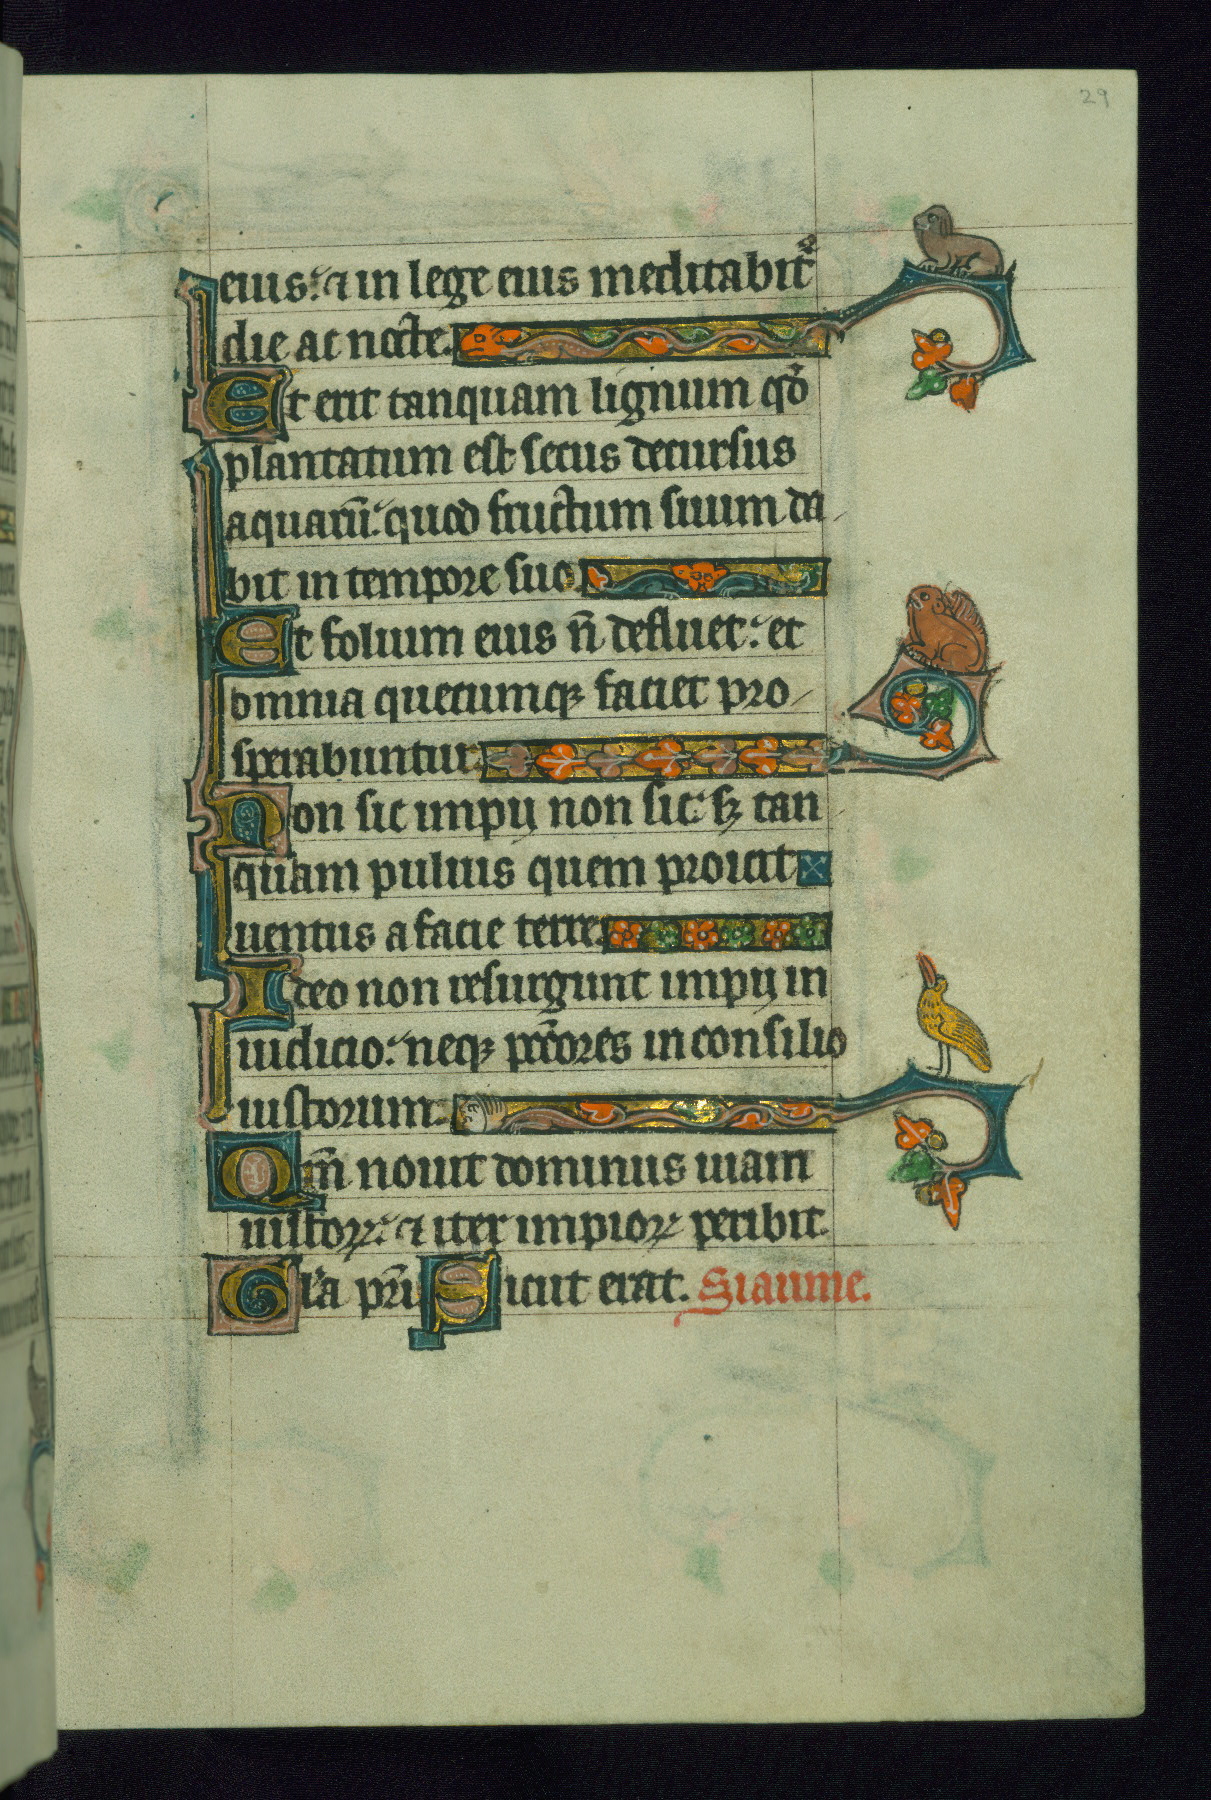 29
eius: ⁊ in lege eius meditabit᷑
die ac nocte.
Et erit tanquam lignum qđ
plantatum est secus decursus
aquarū: quod fructum suum da
bit in tempore suo.
Et folium eius n̄ defluet: et
omnia quecumqꝫ faciet pro
sperabuntur.
Non sic impij non sic: sꝫ tan
quam puluis quem proicit
uentus a facie terre.
Ideo non resurgunt impij in
iudicio: neqꝫ pc̄cores in consilio
iustorum.
Qm̄ nouit dominus uiam
iustoꝝ: ⁊ iter impioꝝ peribit.
Gl'a pr̄i Sicut erat. Siaume.